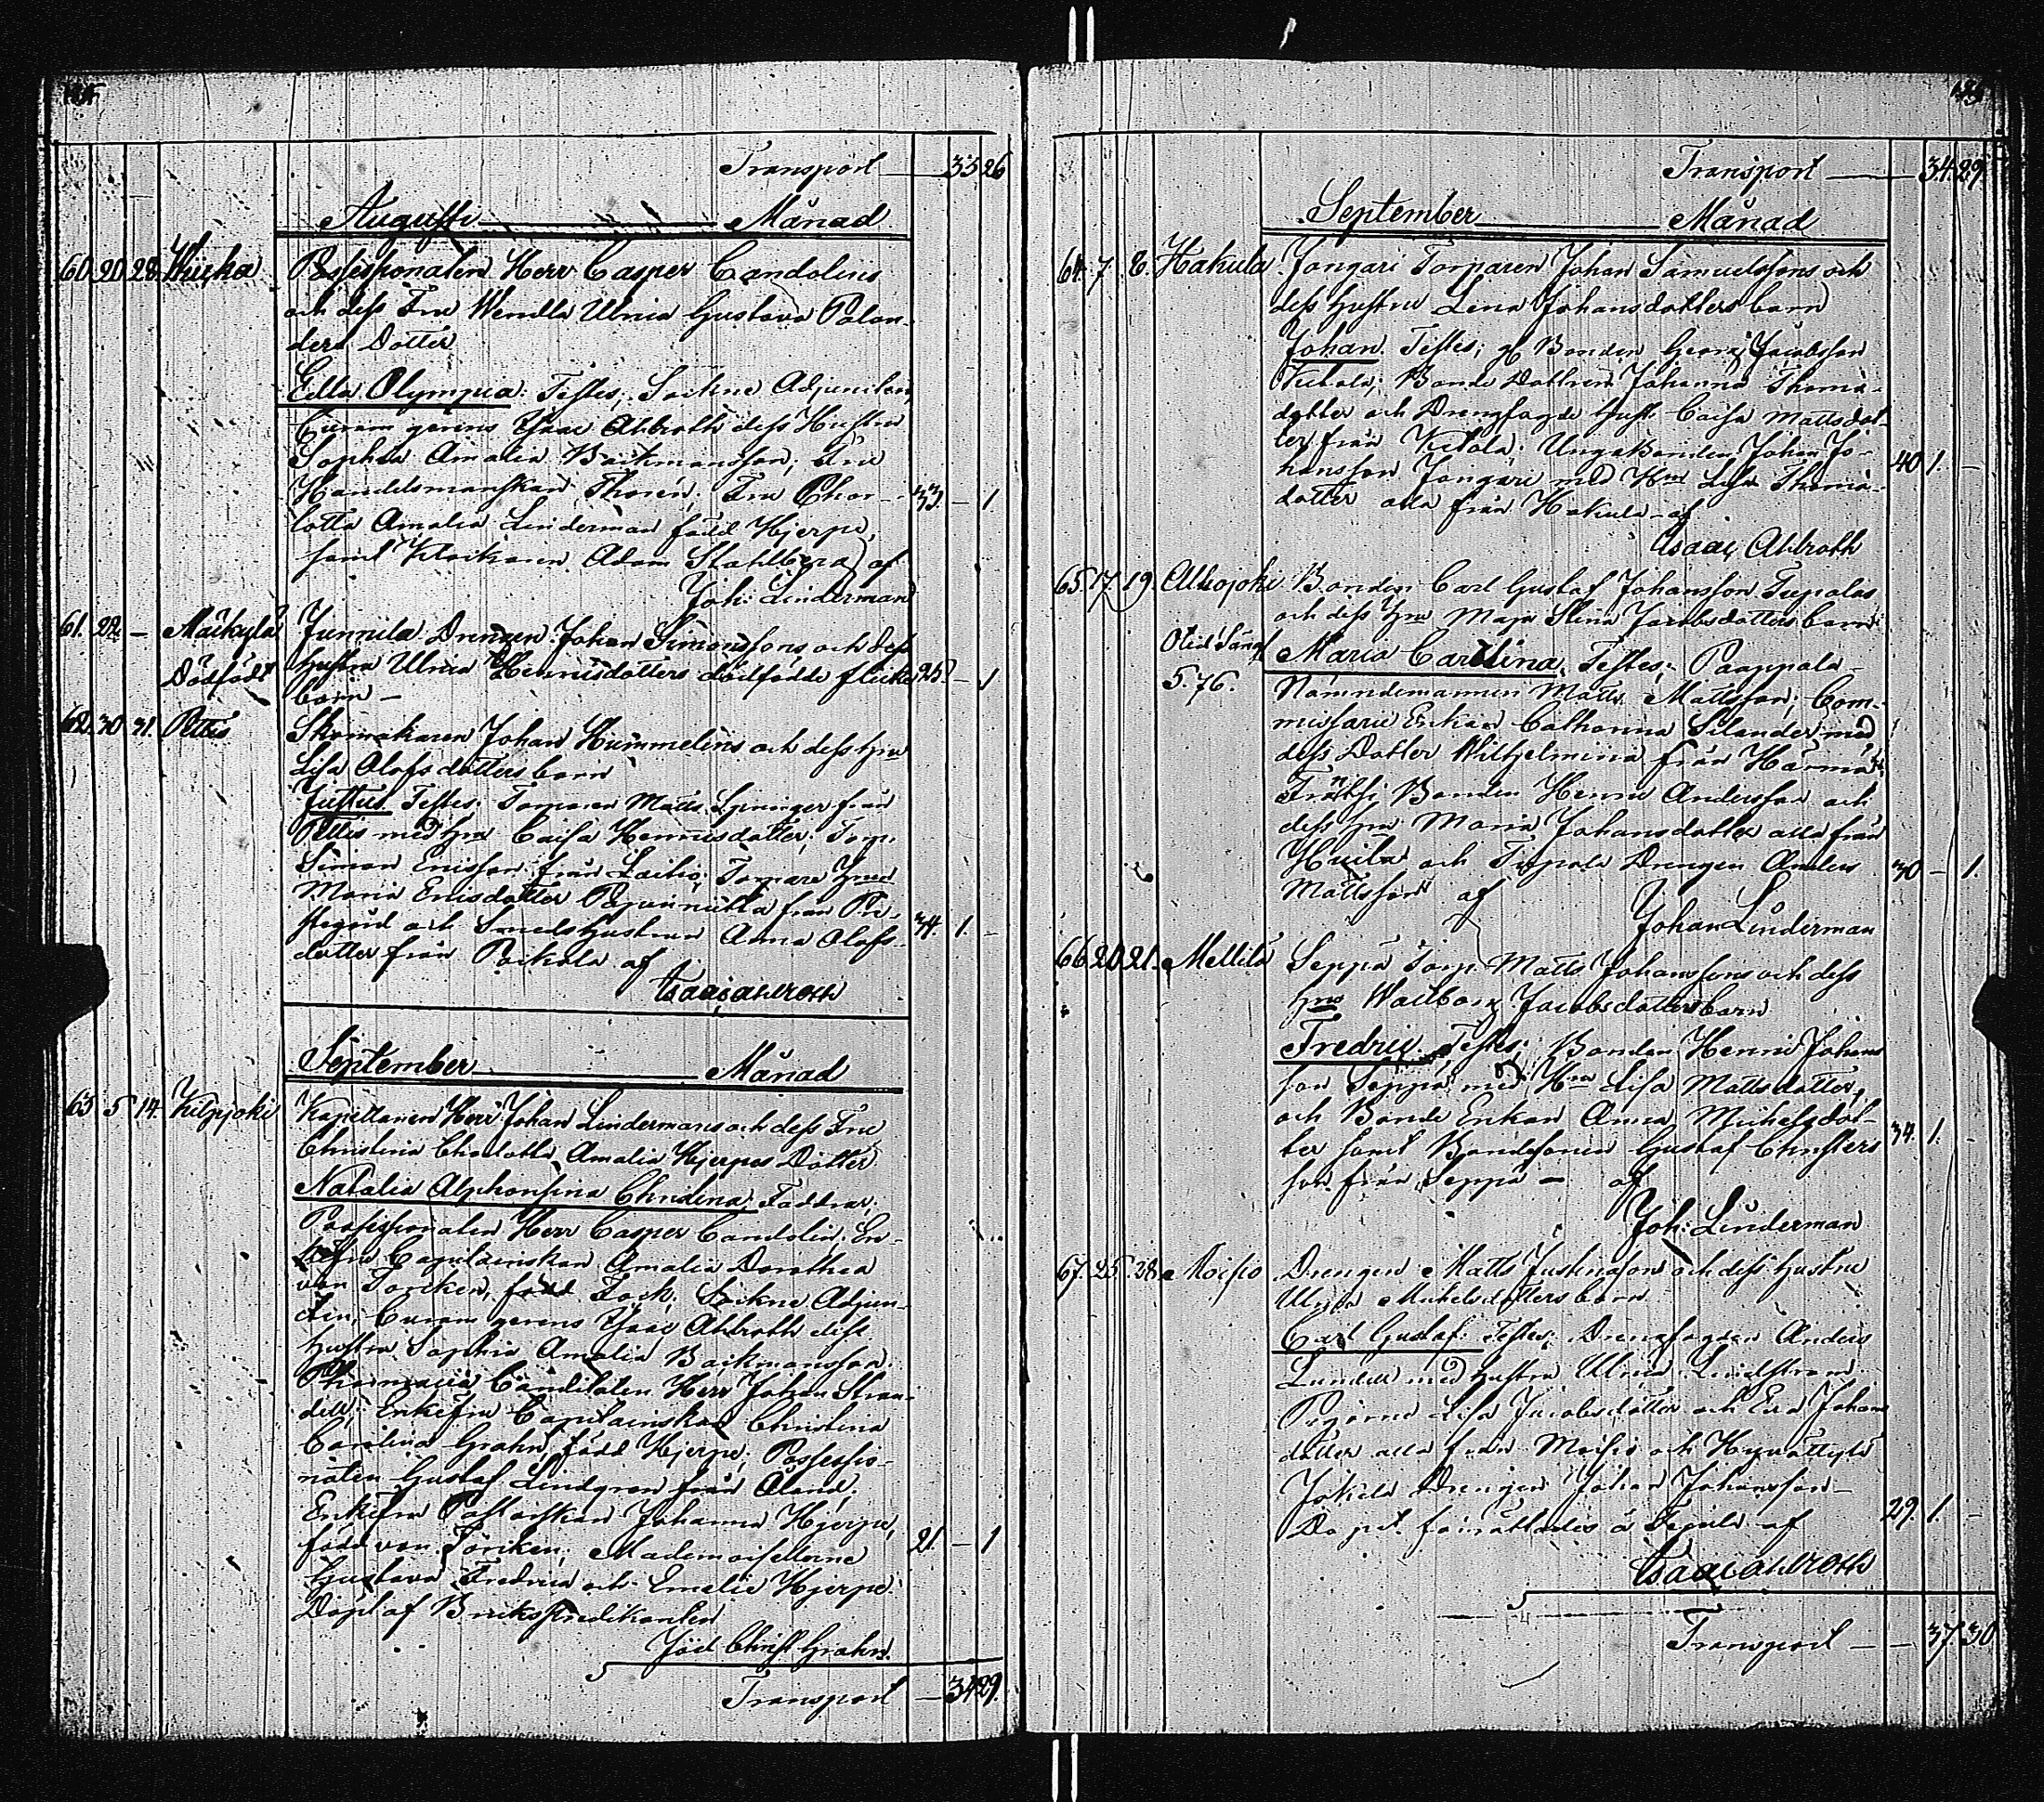 Transport — 35 26
Augusti — Månad
60. 20. 28. Possessionaten Herr Casper Candolins
och dess Fru Wendla Ulrica Gustava Polan-
ders Dotter
Edla Olympia: Testes; Sockne Adjuncten
Curam gerens Isaac Ahlroth dess Hustru
Sophia Amalia Backmansson; Fru
Handelsmanskan Thorén; Fru Char- 33. — 1
lotta Amalia Linderman född Hjerpe,
samt Klockaren Adam Stahlberg af
Joh: Linderman
61. 22. — Mäikylä Junnila Drengen Johan Simonssons och dess
Dödfödt hustru Ulrica Henricsdotters dödfödde flicke 25. — 1
barn —
62. 30 31. Pettis Skomakaren Johan Hummelins och dess hru
Lisa Olofsdotters barn
Justus. Testes: Torparen Matts Spninger från
Pettis med hru Caisa Henricsdotter; Torp.
Simon Ericsson från Laitio; Torpare
Maria Ericsdotter från
och Smeds hustrun Anna Olofs- 34. 1. —
dotter från Poikola af
Isaac Ahlroth
September — Månad
63 5 14. Kilpijoki Kapellanen Herr Johan Lindermans och dess Fru
Christina Charlotta Amalia Hjerpes Dotter
Natalia Alphonsina Christina: Faddrar,
Possessionaten Herr Casper Candolin; En-
kefru Capitainskan Amalia Dorothea
von Torcken, född Fock; Sockne Adjun-
cten, Curam gerens Isaac Ahlroth dess
hustru Sophia Amalia Backmansson.
Pharmacie Candidaten Herr Johan Stran-
dell; Enkefru Capitainskan Christina
Carolina Grahn född Hjerpe; Possessio-
naten Gustaf Lindgren från Åland;
Enkefru Pastorskan Johanna Hjerpe,
född von Törcken; Mademoisellerne 21. — 1
Gustava Fredrica och Emelie Hjerpe.
Döpt af Brukspredikanten
Joël Christ. Grahn.
Transport — 34 29.
Transport — 34. 29.
September — Månad
64. 7. 8. Hakula Jongari Torparen Johan Samuelssons och
dess hustru Lena Johansdotters barn
Johan. Testes; Bonden Georg Jacobsson
Kitola; Bonde Dottren Johanna Thomæ-
dotter och Drengfogde hust. Caisa Mattsdot-
ter från Kitola; Unga Bonden Johan Jo- 40 1. —
hansson Jongari med Hru Lisa Thomæ-
dotter alla från Hakula — af
Isaac Ahlroth
65. 17. 19. Alhojoki Bonden Carl Gustaf Johansson Tupalas
och dess hru Maja Stina Jacobsdotters barn
5. 76. Maria Carolina. Testes; Paappala
Nämndemannen Matts Mattsson; Com-
missarie Enkan Catharina Silander med
dess Dotter Wilhelmina från
Bonden Henric Andersson och
dess hru Maria Johansdotter alla från
och Tupala Drengen Anders 30 — 1.
Mattsson af
Johan Linderman
66 20. 21. Mellilä Seppä Torp. Matts Johanssons och dess
hrus Walborg Jacobsdotters barn
Fredric. Testes; Bonden Henric Johans
son Seppä med Hru Lisa Mattsdotter,
och Bonde Enkan Anna Michelsdot-
ter samt Bondesonen Gustaf Christers 34. 1. —
son från Seppä — af
Joh: Linderman
67. 25. 28. Moisio Drengen Matts Justinasons och dess hustru
Ulrica Michelsdotters barn
Carl Gustaf: Testes; Drengfogden Anders
Lundell med hustru Ulrica Lindström
Pigorne Lisa Jacobsdotter och Eva Johans
dotter alla från Moisio och
Jokela Drengen Johan Johansson —
Dopet förrättades å af 29. 1. —
Isaac Ahlroth
Transport — 37. 30